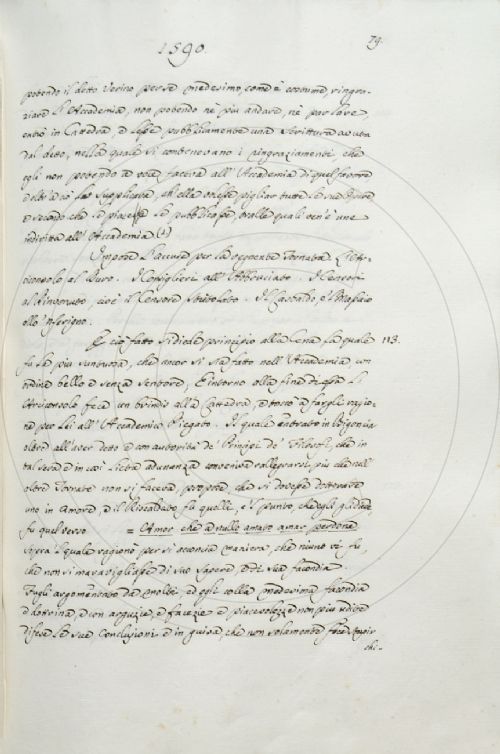 1590.
79.
potendo il detto Verino per se medesimo, come è costume, ringra-
ziare l'Accademia, non potendo nè più andare, nè parlare,
entrò in Cattedra, e lesse pubblicamente una Scrittura avuta
dal detto, nella quale si contenevano i ringraziamenti che
egli non potendo a voce faceva all'Accademia di quel favore
e che la supplicava, ch'ella volesse pigliar tutte le sue Opere
e secondo che le piacesse le pubblicasse, tralle quali ven'è una
indiritta all'Accademia (a)
Impose l'accusa per la seguente Tornata L'Ar-
ciconsolo al Duro. I Consiglieri all'Abbruciato. I Censori
al Rinvenuto, cioè il Censore Stritolato. Il Castaldo, e'l Massaio
allo 'nferigno.
E ciò fatto si diede principio alla Cena la quale
113.
fu la più suntuosa, che ancor si sia fatto nell'Accademia, con
ordine bello e senza sentore, E intorno alla fine di essa L'
Arciconsolo fece un brindis alla Cattedra, e toccò a fargli ragio-
ne per Lei all'Accademico Riegato. Il quale entrato in Bigoncia
oltre all'aver detto e con autorità de' Principi de' Filosofi, che in
tal sera e in così lieta adunanza conveniva rallegrarsi più che nell'
altre Tornate non si faceva, propose che si dovesse dottorare
uno in Amore, e il Riscaldato fu quelli, e 'l punto, che egli gli diede,
fu quel verso = Amor che a nullo amato amar perdona
sopra 'l quale ragionò per sì acconcia maniera, che niuno vi fu,
che non si maravigliasse di suo sapere, e di sua facondia.
Fugli argomentato da molti, ed egli colla medesima facondia
e dottrina, e con arguzie, e facezie e piacevolezze non più udite
difese le sue Conclusioni e in guisa, che non solamente fece stupir
chi-